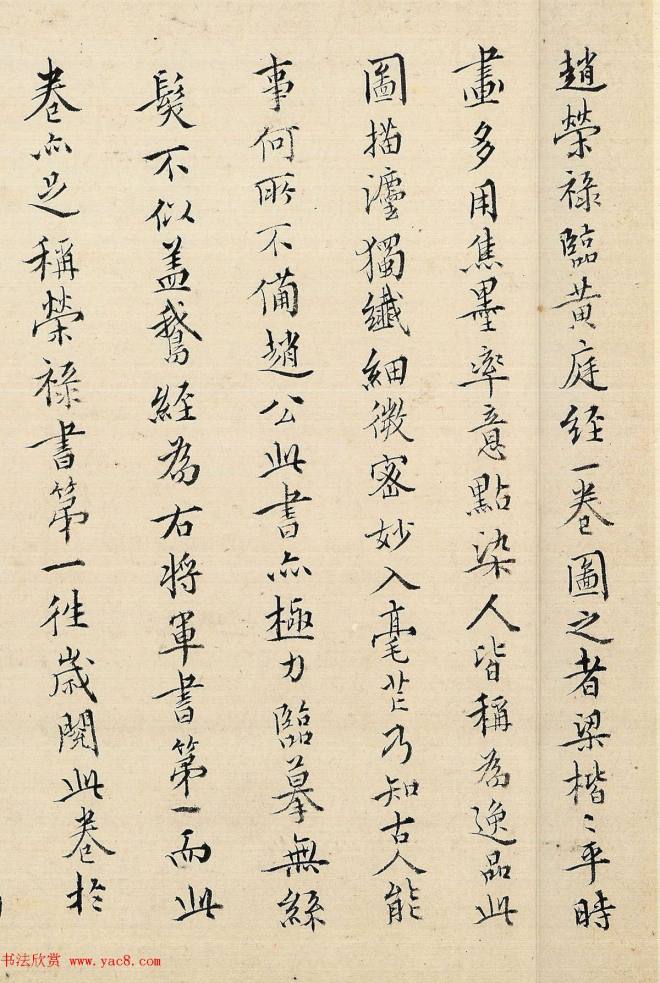 趙榮祿臨黃庭經一卷圖之者梁楷〻平時
畫多用焦墨率意點染人皆稱為逸品此
圖描瀋獨纖細微密妙入毫芒乃知古人能
事何所不備趙公此書亦極力臨摹無絲
髮不似盖鵞經為右將軍書第一而此
卷亦足稱榮祿書第一往歲閱此卷扵
书法欣赏 www.yac8.com